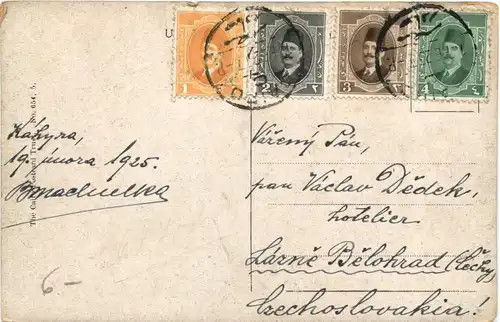 1 2 ٢ 3 ٣ 4 ٤
Káhyra,
19. února 1925.
Vážený Pán,
pan Václav Dědek,
hotelier
Lázně Bělohrad (Čechy)
Czechoslovakia!
6-
The Cairo Postcard Trust, No. 654.